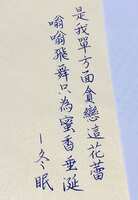 是我單方面貪戀這花蕾
嗡嗡飛舞只為蜜香垂涎
－冬眠